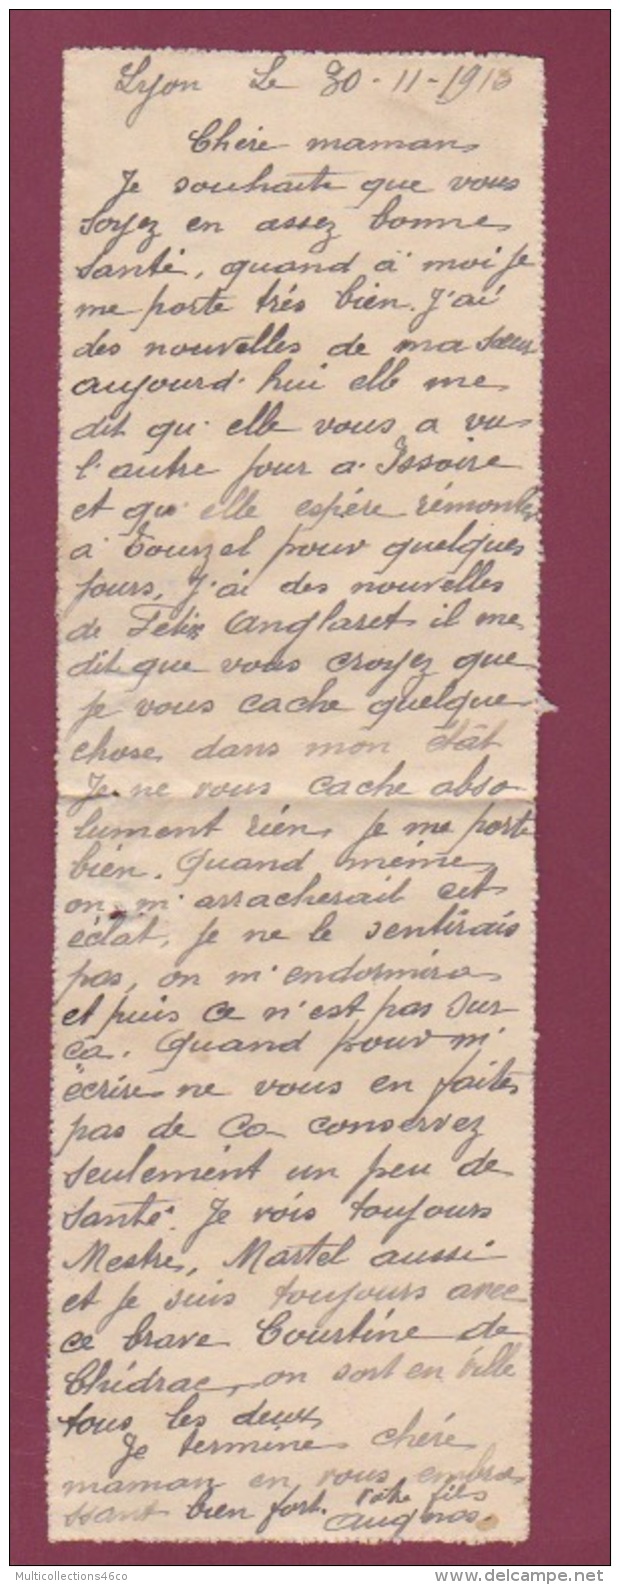 Lyon Le 30-11-191
Chére maman
Je souhaite que vous
soyez en assez bonne
santé, quand à moi je
me porte trés bien. J'ai
des nouvelles de ma sœur
aujourd'hui elle me
dit qu'elle vous a vu
l'autre jour a Issoire
et qu'elle espére rémonter
à Tourzel pour quelques
jours, J'ai des nouvelles
de Félix Anglaret il me
dit que vous croyez que
je vous cache quelque
chose dans mon état
Je ne vous cache abso-
lument rién, je me porte
bién. Quand méme
on m'arracherait cet
éclat, je ne le sentirais
pas, on m'endormira
et puis ce n'est pas sur
ca. Quand pour m'
écrire ne vous en faites
pas de ca conservez
seulement un peu de
santé. Je vois toujours
Mestre, Martel aussi
et je suis toujours avec
ce brave Courtine de
Chidrac, on sort en ville
tous les deux
Je termine chére
maman en vous embra-
ssant bien fort. votre fils
Multicollections46co
www.delcampe.net